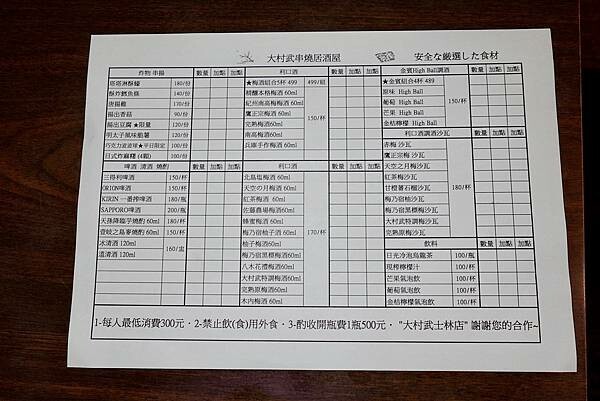 大村武串燒居酒屋 安全な厳選した食材
炸物 串揚 數量 加點 加點
塔塔洲酥蠔 180/份
酥炸鱈魚條 140/份
唐揚雞 170/份
揚出香菇 90/份
揚出豆腐 ★限量 120/份
明太子風味脆薯 120/份
巧克力波波球★平日限定 100/份
日式炸麻糬 (4顆) 100/份
啤酒 清酒 燒酌 數量 加點 加點
三得利啤酒 150/杯
ORION啤酒 150/杯
KIRIN 一番搾啤酒 180/瓶
SAPPORO啤酒 200/瓶
天孫降臨芋燒酌 60ml 180/杯
壹岐之島麥燒酌 60ml 150/杯
冰清酒 120ml 160/盅
溫清酒 120ml
利口酒 數量 加點 加點
★梅酒組合5杯 499 499/組
精釀本格梅酒 60ml 150/杯
紀州南高梅梅酒 60ml
鷹正宗梅酒 60ml
完熟梅酒60ml
南高梅酒60ml
兵庫手作梅酒 60ml
利口酒 數量 加點 加點
北島塩梅酒 60ml 170/杯
天空の月梅酒 60ml
紅茶梅酒 60ml
佐藤農場梅酒60ml
蜂蜜梅酒 60ml
梅乃宿柚子酒 60ml
柚子梅酒60ml
梅乃宿黑標梅酒60ml
八木花禮梅酒60ml
大村武特調梅酒60ml
完熟原梅酒 60ml
木内梅酒 60ml
金賓High Ball調酒 數量 加點 加點
★金賓組合4杯 489
原味 High Ball 150/杯
葡萄 High Ball
芒果 High Ball
金桔檸檬 High Ball
利口酒調酒沙瓦
赤梅 沙瓦 180/杯
鷹正宗梅 沙瓦
天空之月梅沙瓦
紅茶梅沙瓦
甘橙薯石榴沙瓦
梅乃宿柚沙瓦
梅乃宿黑標梅沙瓦
大村武特調梅沙瓦
完熟原梅沙瓦
飲料 數量 加點 加點
日光冷泡烏龍茶 100/瓶
現榨檸檬汁 100/杯
芒果氣泡飲 100/杯
葡萄氣泡飲 100/杯
金桔檸檬氣泡飲 100/杯
1-每人最低消費300元．2-禁止飲(食)用外食．3-酌收開瓶費1瓶500元． "大村武士林店" 謝謝您的合作~